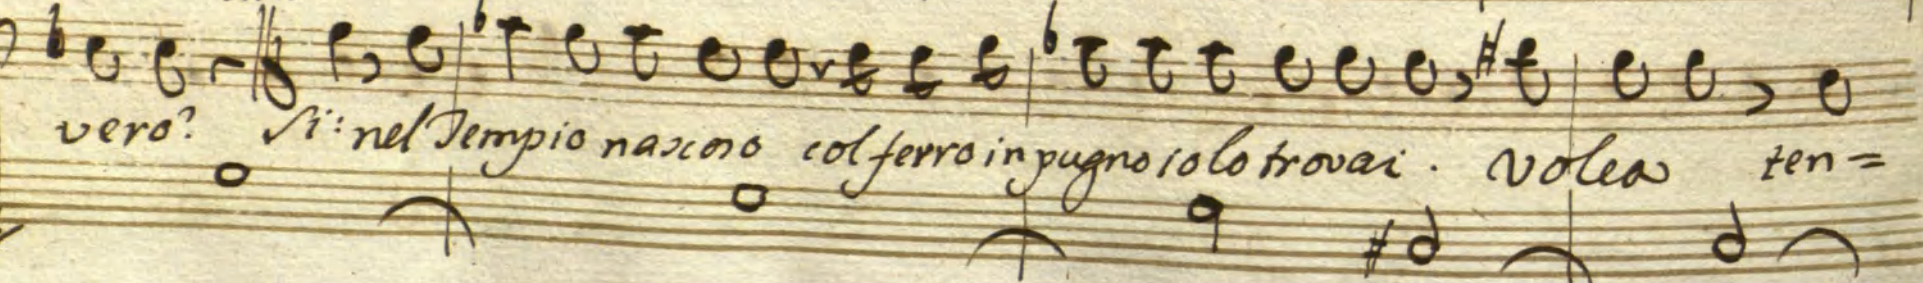 vero? Si: nel Tempio nascoso col ferro in pugno io lo trovai. Volea ten=